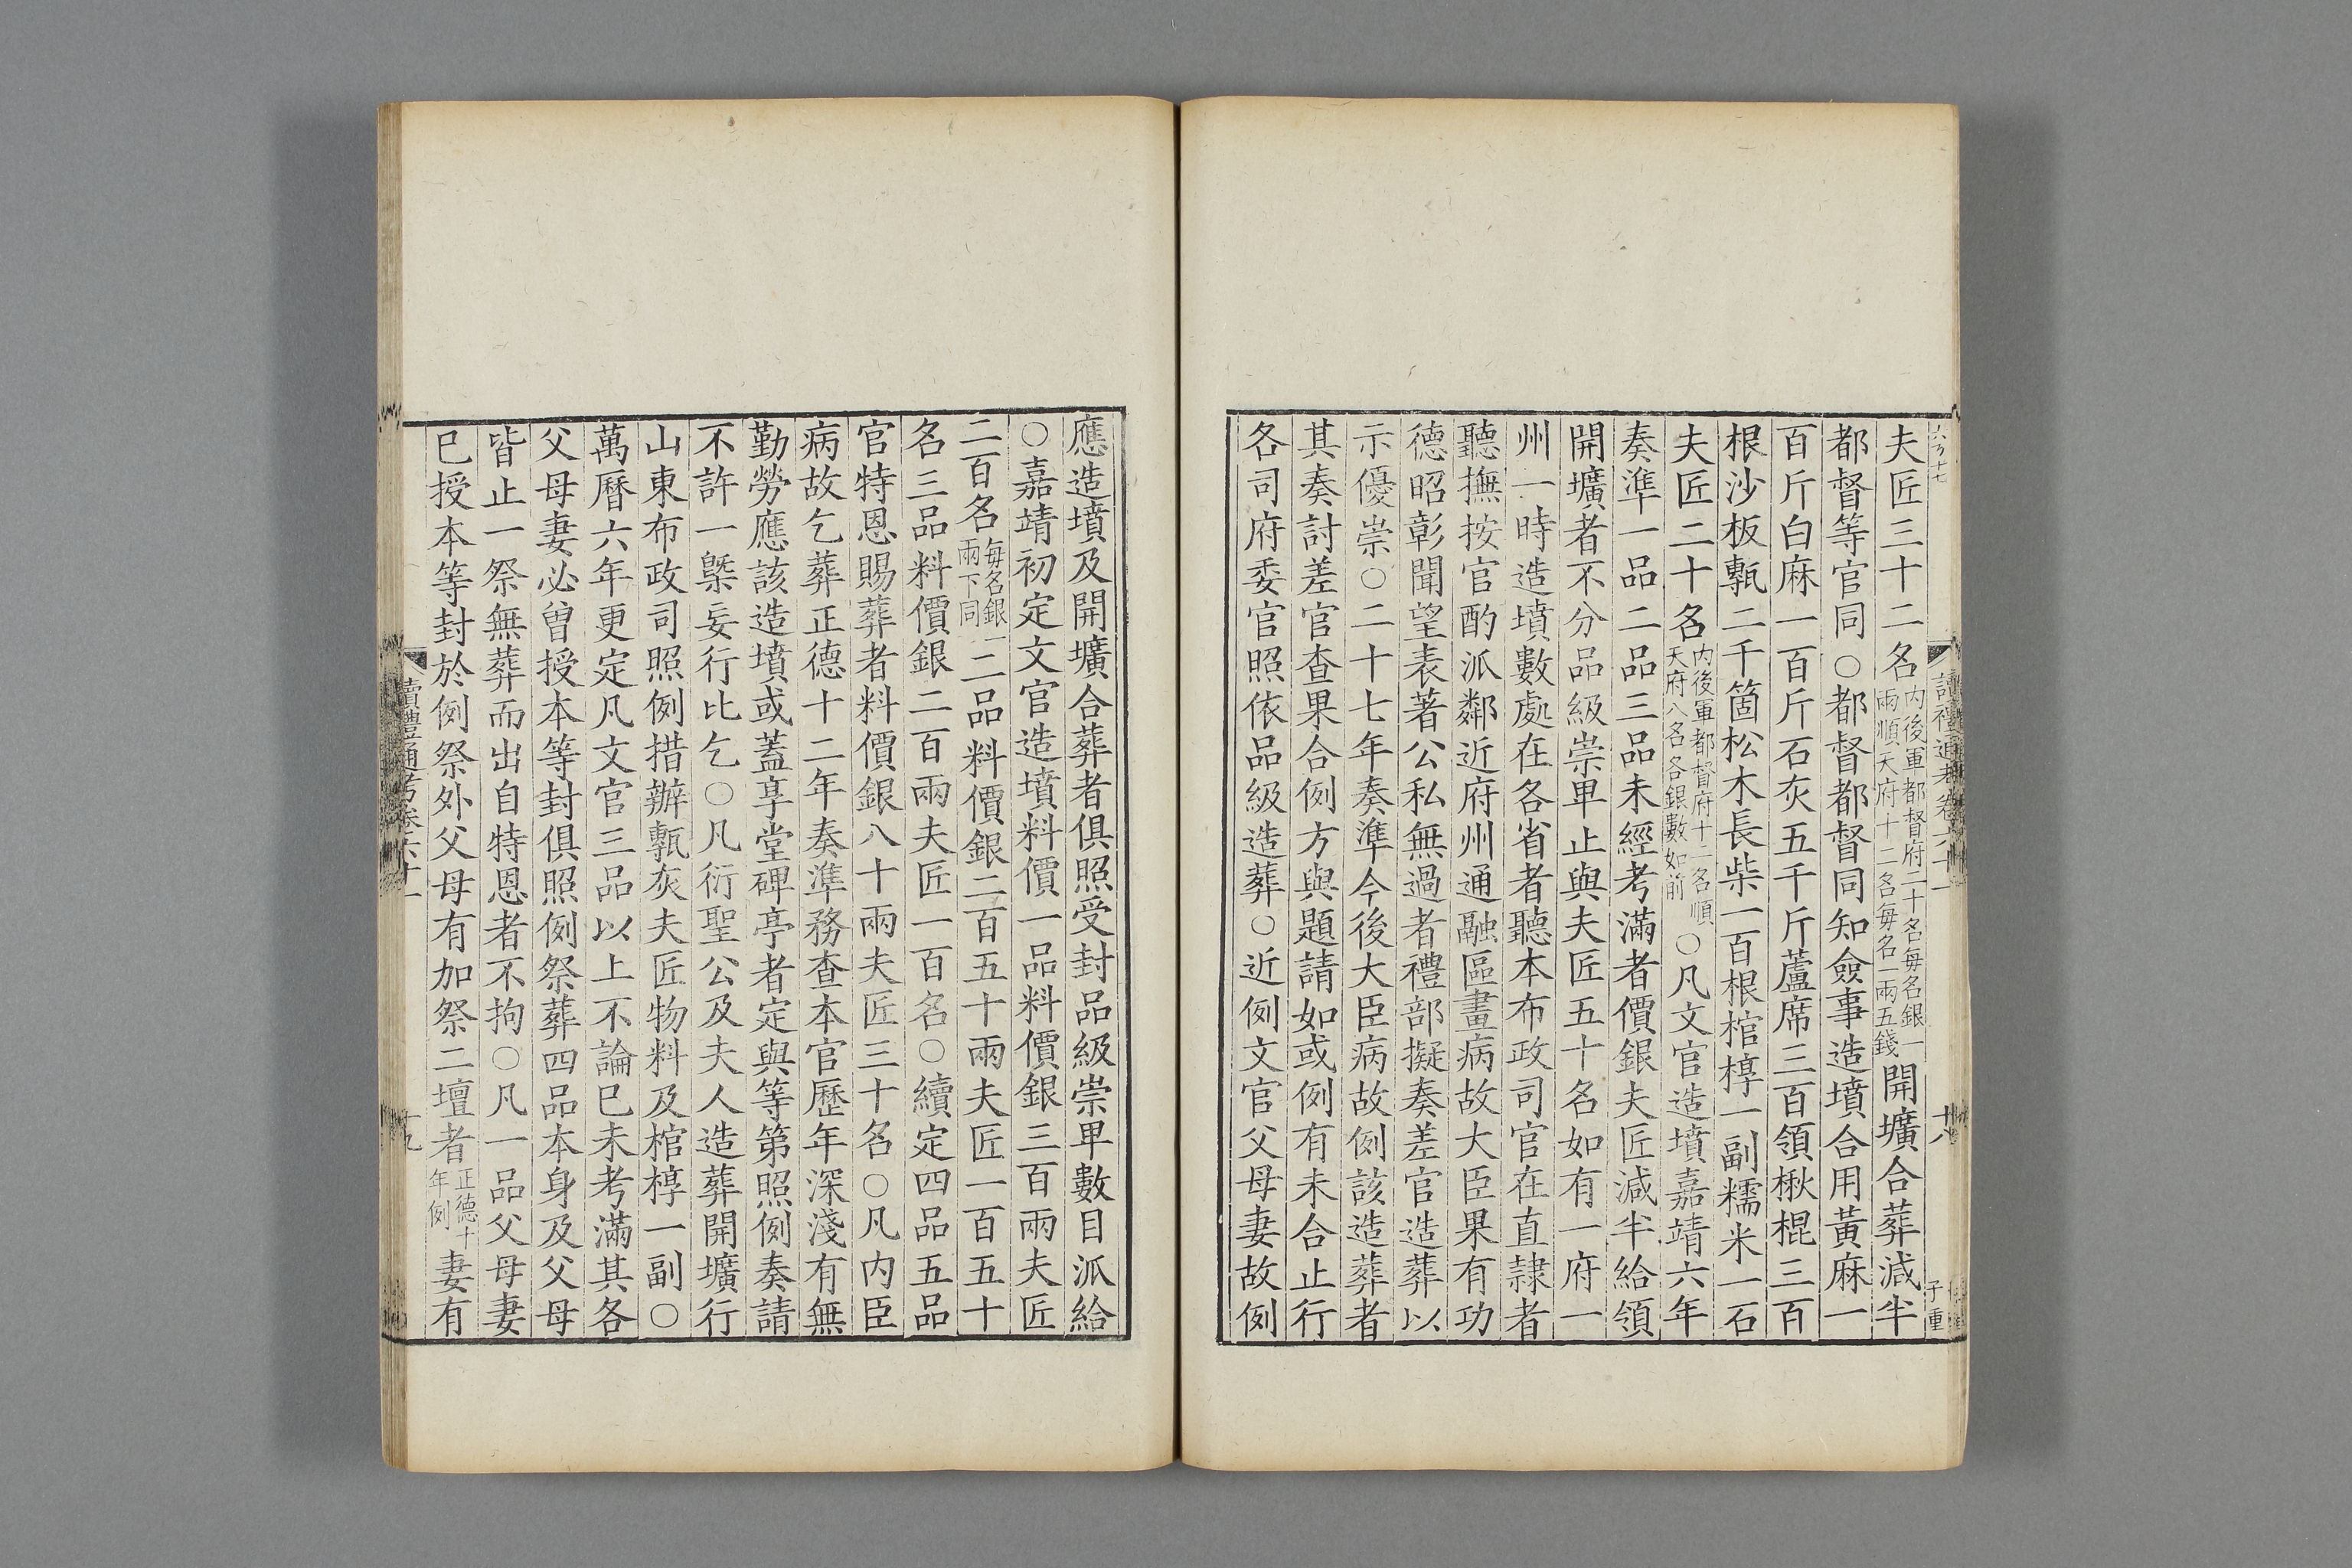 夫匠三十二名内後軍都督府二十名每名銀一兩順天府十二名每名一兩五錢開壙合葬減半
都督等官同○都督都督同知僉事造墳合用黃麻一
百斤白麻一百斤石灰五千斤蘆席三百領楸棍三百
根沙板甎二千箇松木長柴一百根棺椁一副糯米一石
夫匠二十名内後軍都督府十二名順天府八名各銀數如前○凡文官造墳嘉靖六年
奏準一品二品三品未經考滿者價銀夫匠減半給領
開壙者不分品級崇卑止與夫匠五十名如有一府一
州一時造墳數處在各省者聽本布政司官在直隷者
聽撫按官酌派鄰近府州通融區畫病故大臣果有功
德昭彰聞望表著公私無過者禮部擬奏差官造葬以
示優崇○二十七年奏準今後大臣病故例該造葬者
其奏討差官查果合例方與題請如或例有未合止行
各司府委官照依品級造葬○近例文官父母妻故例
讀禮通考卷六十一
十八
應造墳及開壙合葬者俱照受封品級崇卑數目派給
○嘉靖初定文官造墳料價一品料價銀三百兩夫匠
二百名每名銀一兩下同二品料價銀二百五十兩夫匠一百五十
名三品料價銀二百兩夫匠一百名○續定四品五品
官特恩賜葬者料價銀八十兩夫匠三十名○凡内臣
病故乞葬正德十二年奏準務查本官歷年深淺有無
勤勞應該造墳或蓋享堂碑亭者定與等第照例奏請
不許一槩妄行比乞○凡衍聖公及夫人造葬開壙行
山東布政司照例措辦甎灰夫匠物料及棺椁一副○
萬曆六年更定凡文官三品以上不論已未考滿其各
父母妻必曾授本等封俱照例祭葬四品本身及父母
皆止一祭無葬而出自特恩者不拘○凡一品父母妻
已授本等封於例祭外父母有加祭二壇者正德十年例妻有
讀禮通考卷六十一
十九